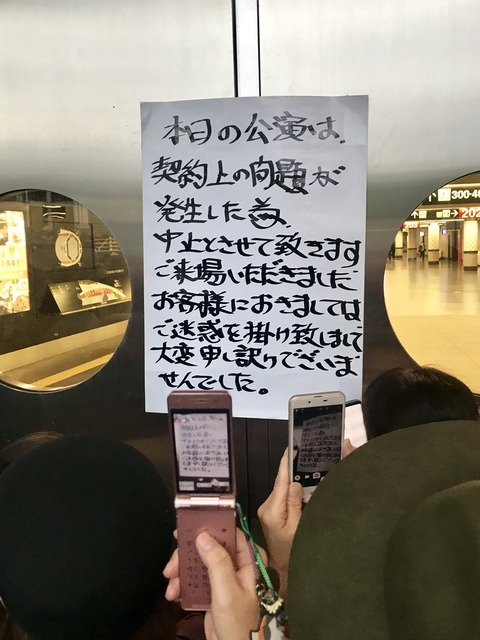 本日の公演は、
契約上の問題が
発生した為、
中止とさせて致きます
ご来場いただきました
お客様におきましては
ご迷惑を掛け致しまして
大変申し訳りでございま
せんでした。
300-40
202